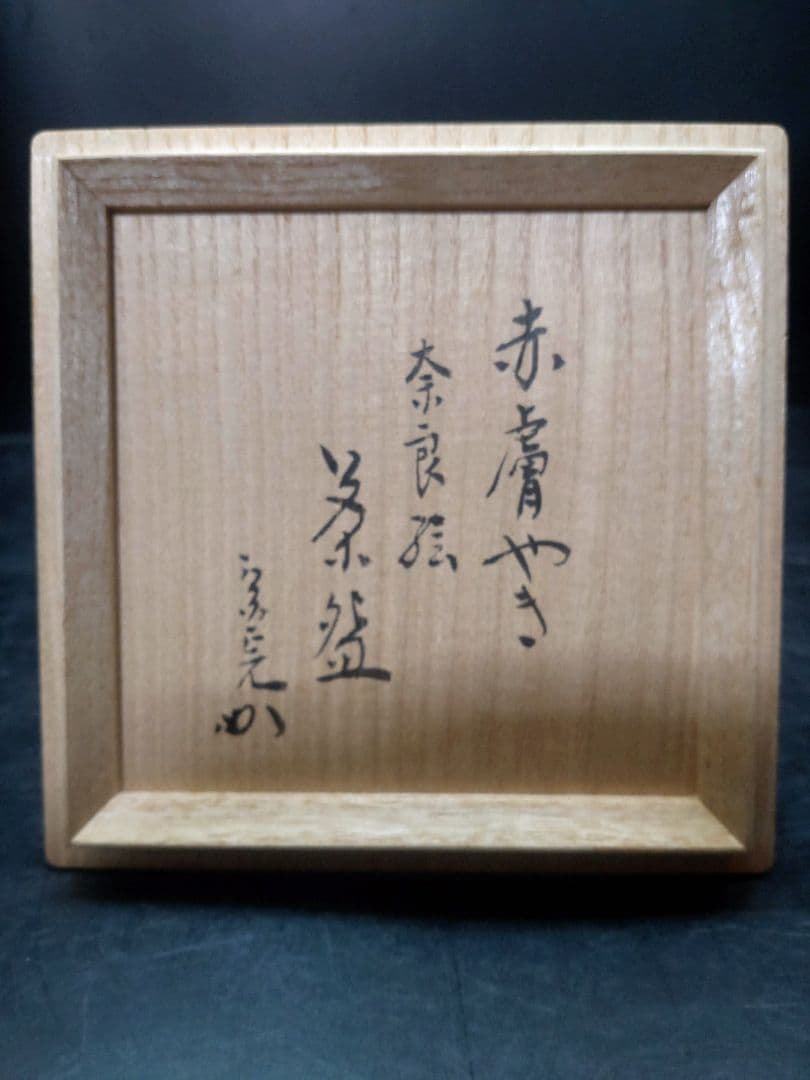 赤膚やき
奈良絵
茶盌